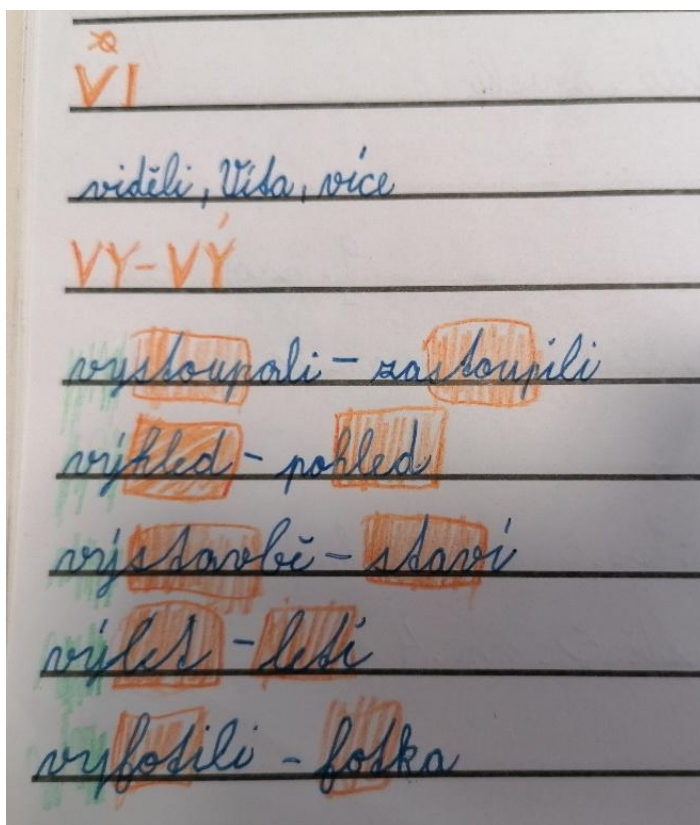 VI
viděli, Víta, více
VY-VÝ
vystoupali - zastoupili
výhled - pohled
výstavbě - staví
výlet - letí
vyfotili - fotka